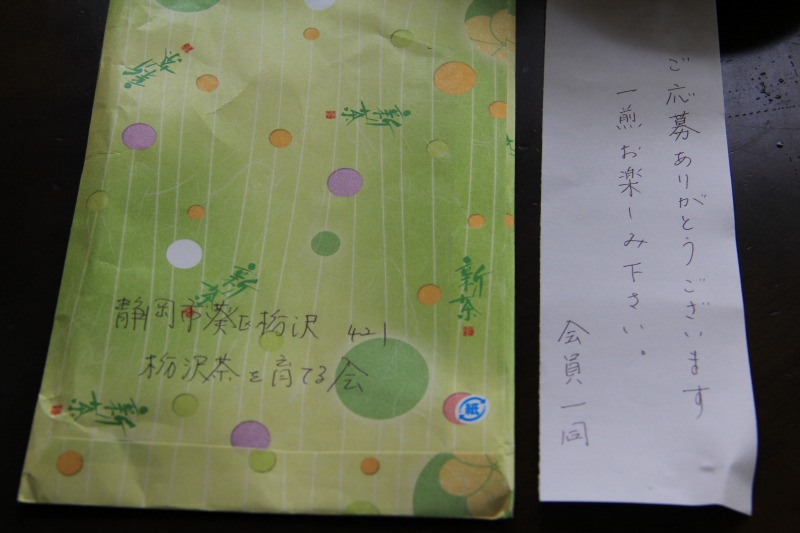 新茶
新茶
新茶
新茶
新茶
静岡市葵区栃沢 421
栃沢茶を育てる会
紙
ご応募ありがとうございます
一煎お楽しみ下さい。
会員一同